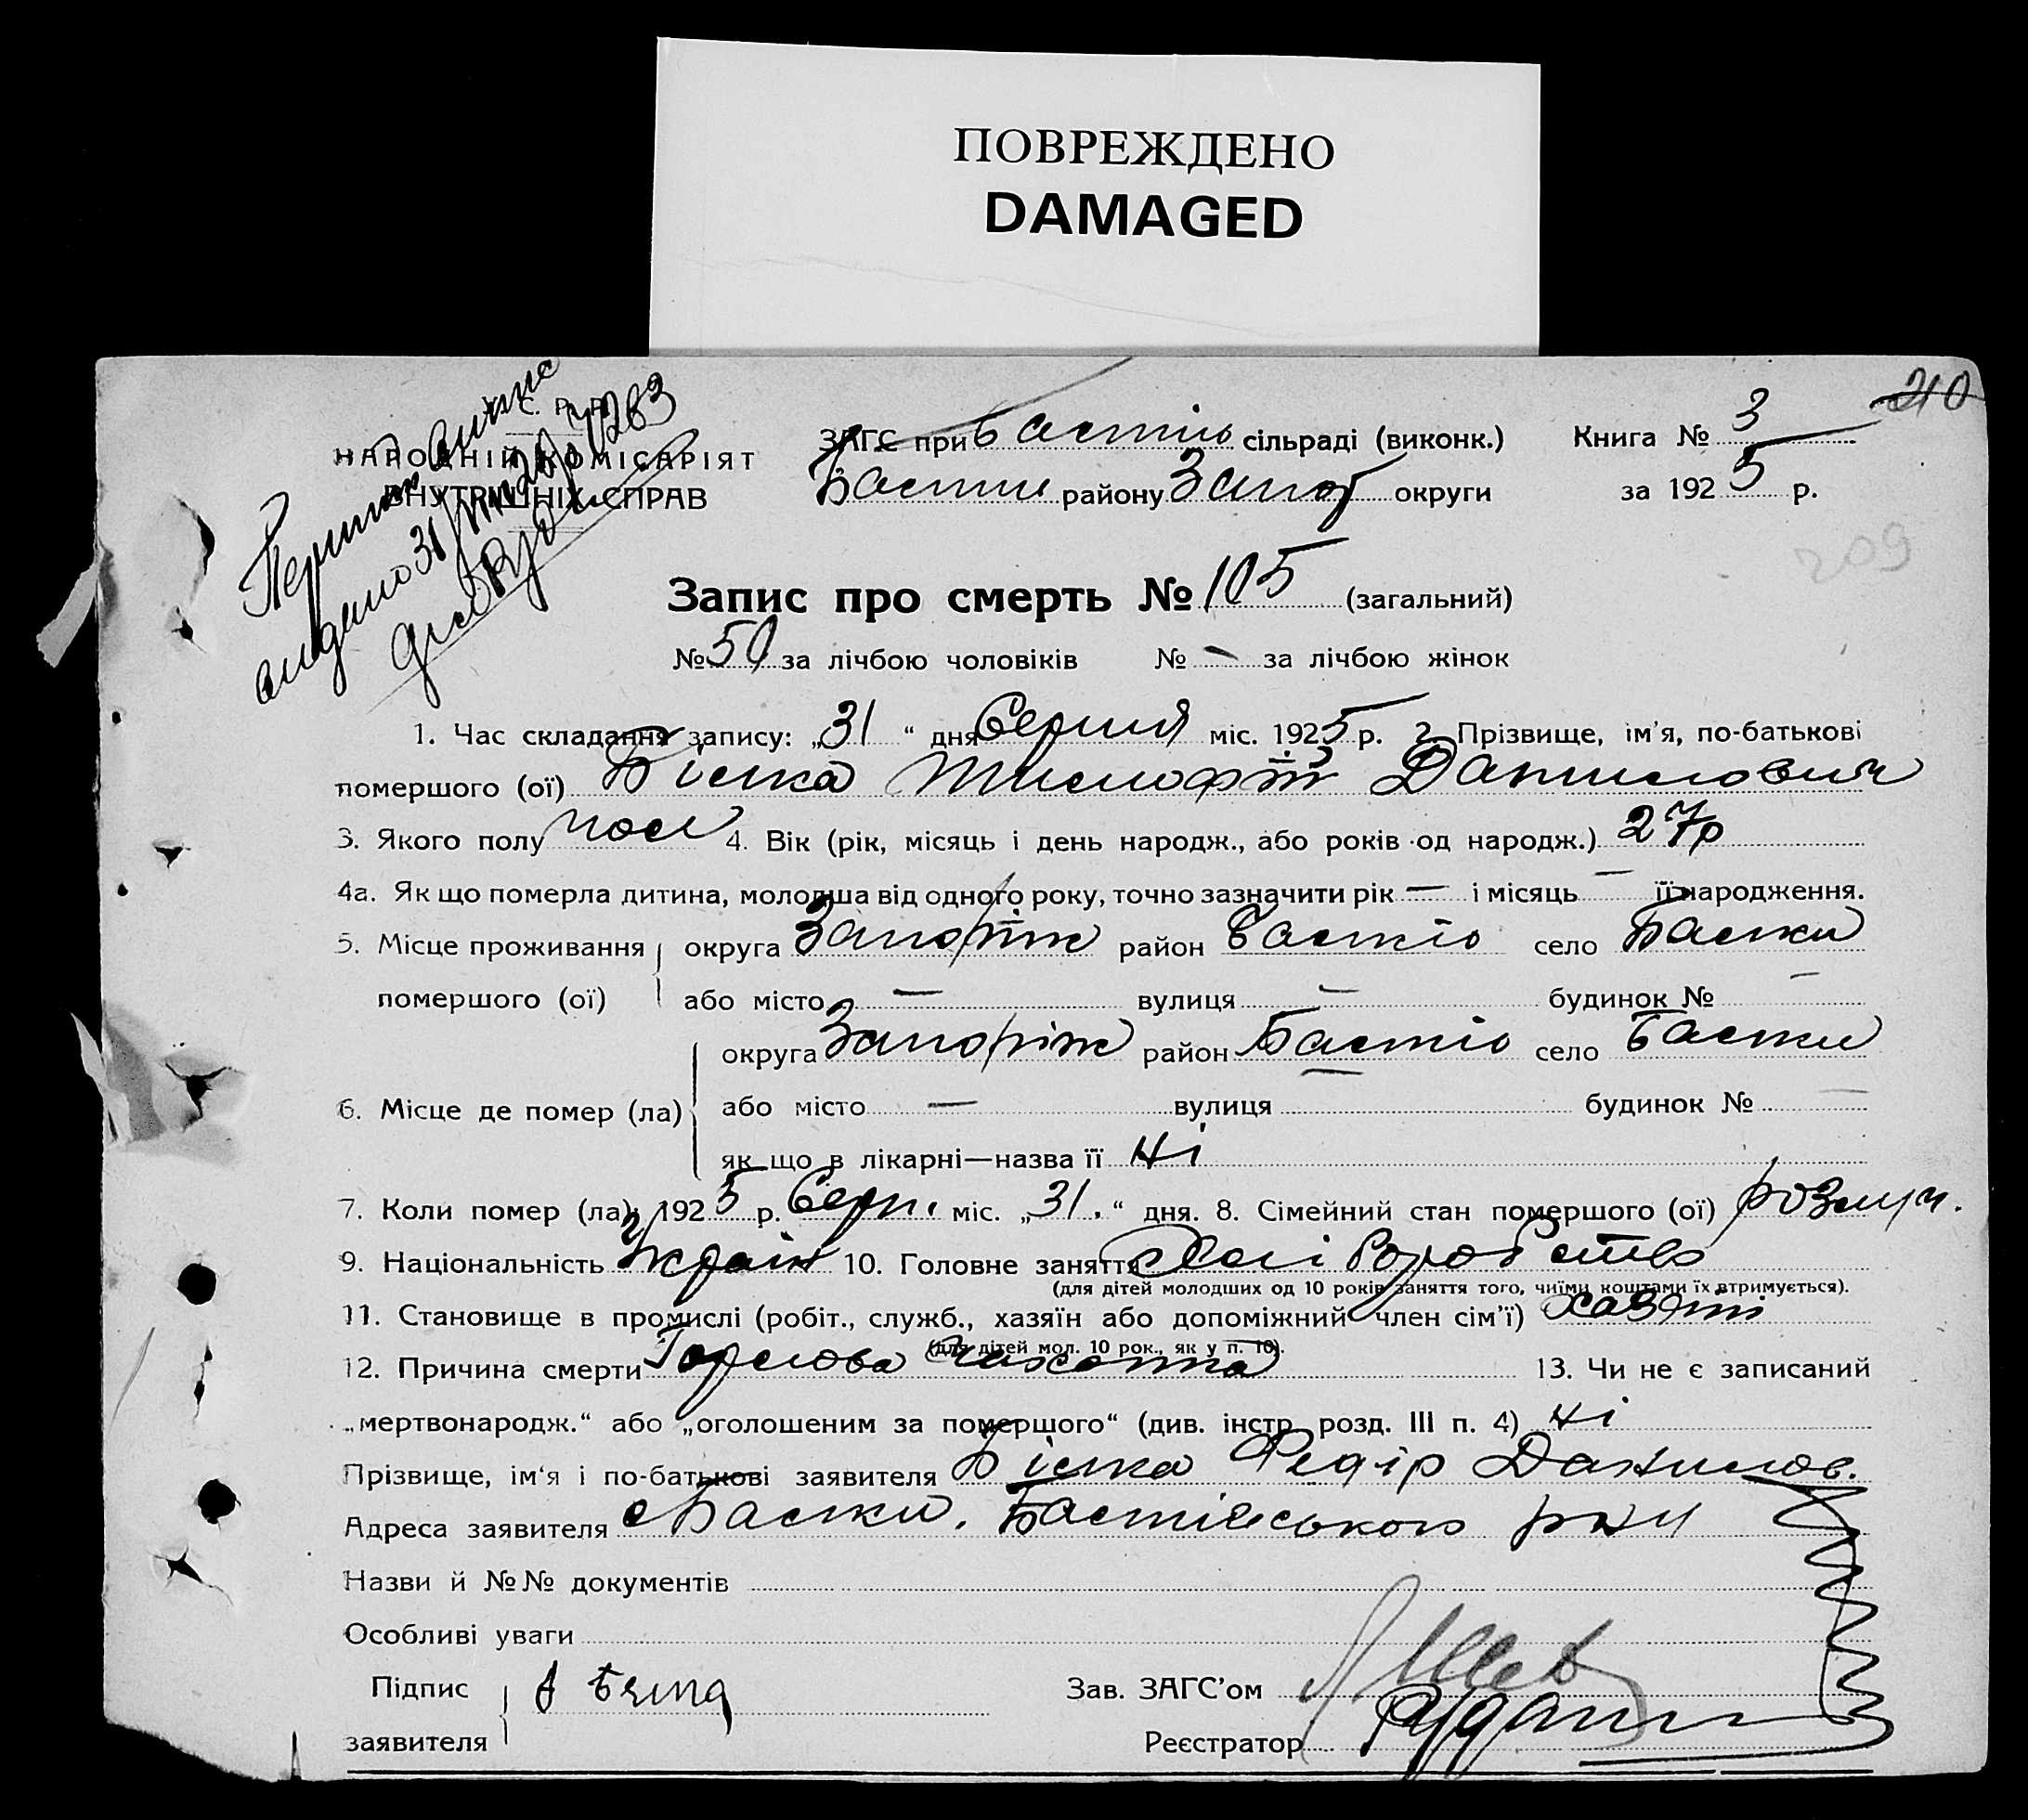 ПОВРЕЖДЕНО
DAMAGED
210
С. Р. Р.
НАРОДНІЙ КОМІСАРІЯТ
ВНУТРІШНІХ СПРАВ
видано 31/VIII
ЗАГС при сільраді (виконк.)
району округи
Книга № 3
за 1925 р.
209
Запис про смерть № 105 (загальний)
№ 50 за лічбою чоловіків № - за лічбою жінок
1. Час складання запису: „31“ дня Серпня міс. 1925 р. 2. Прізвище, ім'я, по-батькові
помершого (ої) Данилович
3. Якого полу чол 4. Вік (рік, місяць і день народж., або років од народж.) 27р
4а. Як що померла дитина, молодша від одного року, точно зазначити рік — і місяць — її народження.
5. Місце проживання округа Запоріж район село Баски
помершого (ої) або місто — вулиця — будинок № —
6. Місце де помер (ла) округа Запоріж район село Баски
або місто — вулиця — будинок № —
як що в лікарні—назва її Ні
7. Коли помер (ла): 1925 р. Серп. міс. „31.“ дня. 8. Сімейний стан помершого (ої)
9. Національність Україн 10. Головне заняття
(для дітей молодших од 10 років заняття того, чиїми коштами їх втримується).
11. Становище в промислі (робіт., служб., хазяїн або допоміжний член сім'ї) хазяїн
(для дітей мол. 10 рок., як у п. 10).
12. Причина смерти Горлова чахотка 13. Чи не є записаний
„мертвонародж.“ або „оголошеним за помершого“ (див. інстр. розд. III п. 4) Ні
Прізвище, ім'я і по-батькові заявителя Федір Данилов.
Адреса заявителя с Баски. рну
Назви й №№ документів
Особливі уваги
Підпис заявителя
Зав. ЗАГС'ом
Реєстратор